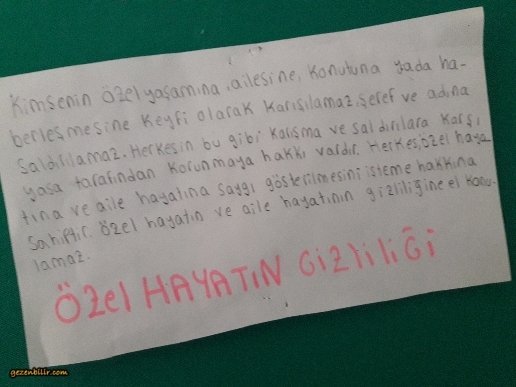 Kimsenin özel yaşamına, ailesine, konutuna yada ha-
berleşmesine keyfi olarak karışılamaz, şeref ve adına
saldırılamaz. Herkesin bu gibi karışma ve saldırılara karşı
yasa tarafından korunmaya hakkı vardır. Herkes, özel haya
tına ve aile hayatına saygı gösterilmesini isteme hakkına
sahiptir. Özel hayatın ve aile hayatının gizliliğine el konu-
lamaz.
ÖZel HAYATIN GİZliliĞİ
gezenbilir.com